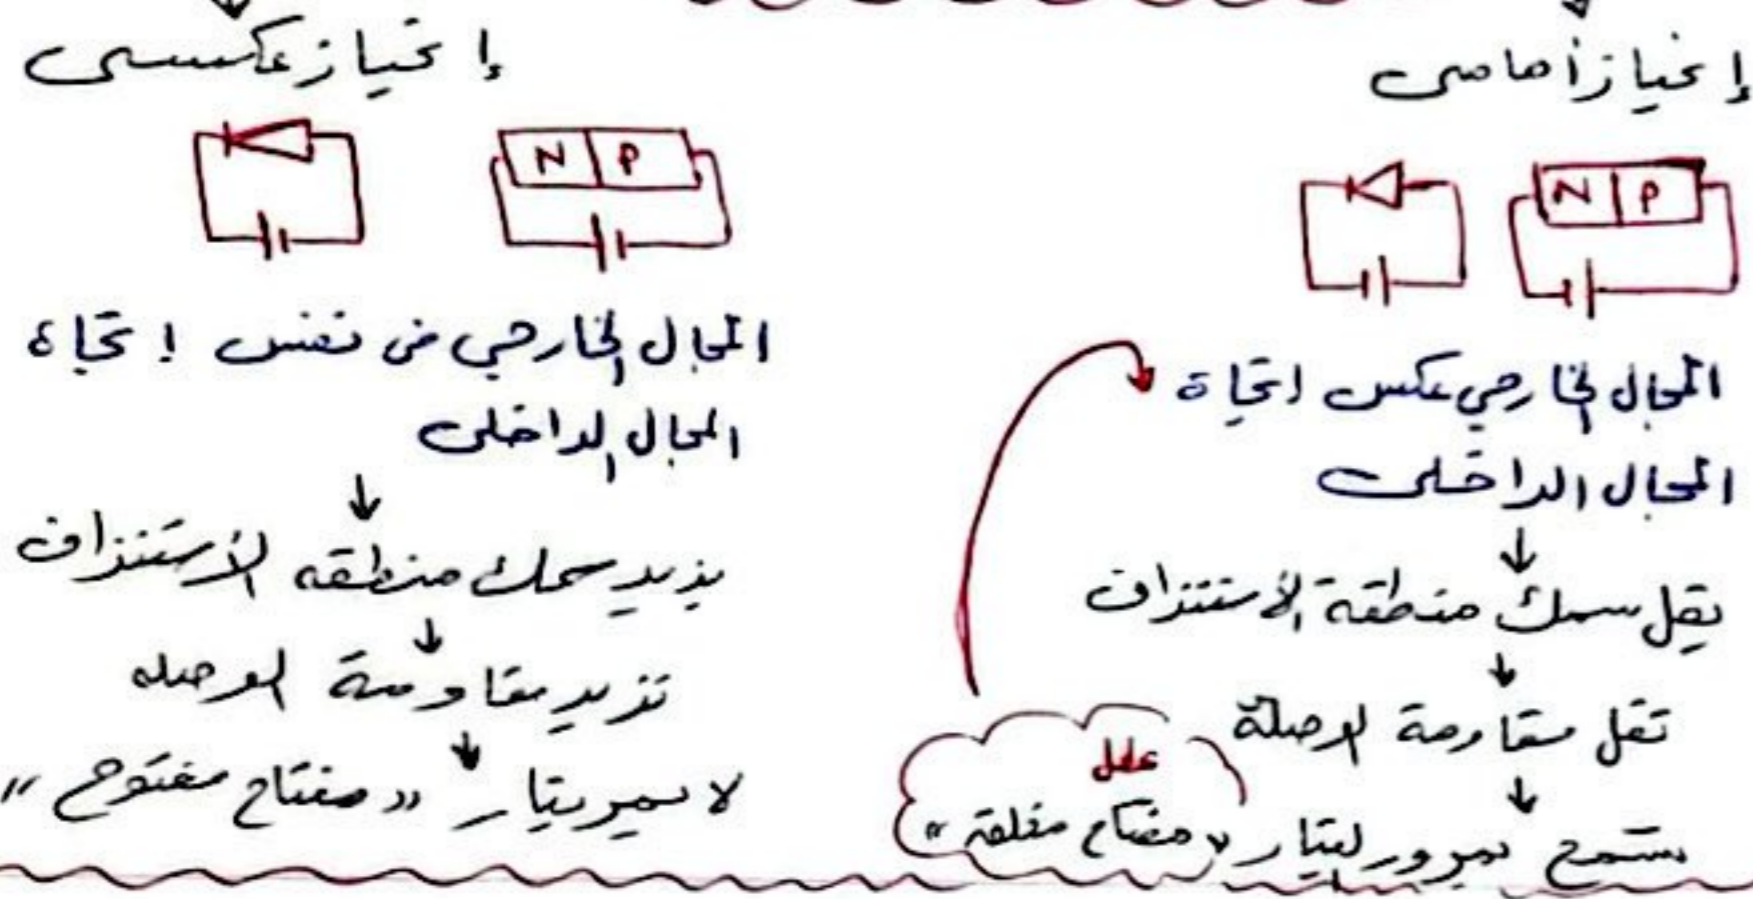 إنحياز أمامى
N P
المجال الخارجي عكس اتجاة
المجال الداخلى
↓
يقل سمك منطقة الأستنزاف
↓
تقل مقاومة الوصلة
↓
تسمح بمرور التيار "مفتاح مغلق"
علل
إنحياز عكسى
N P
المجال الخارجي فى نفس إتجاة
المجال الداخلى
↓
يزيد سمك منطقه الأستنزاف
↓
تزيد مقاومة الوصله
↓
لا يمر تيار "مفتاح مفتوح"